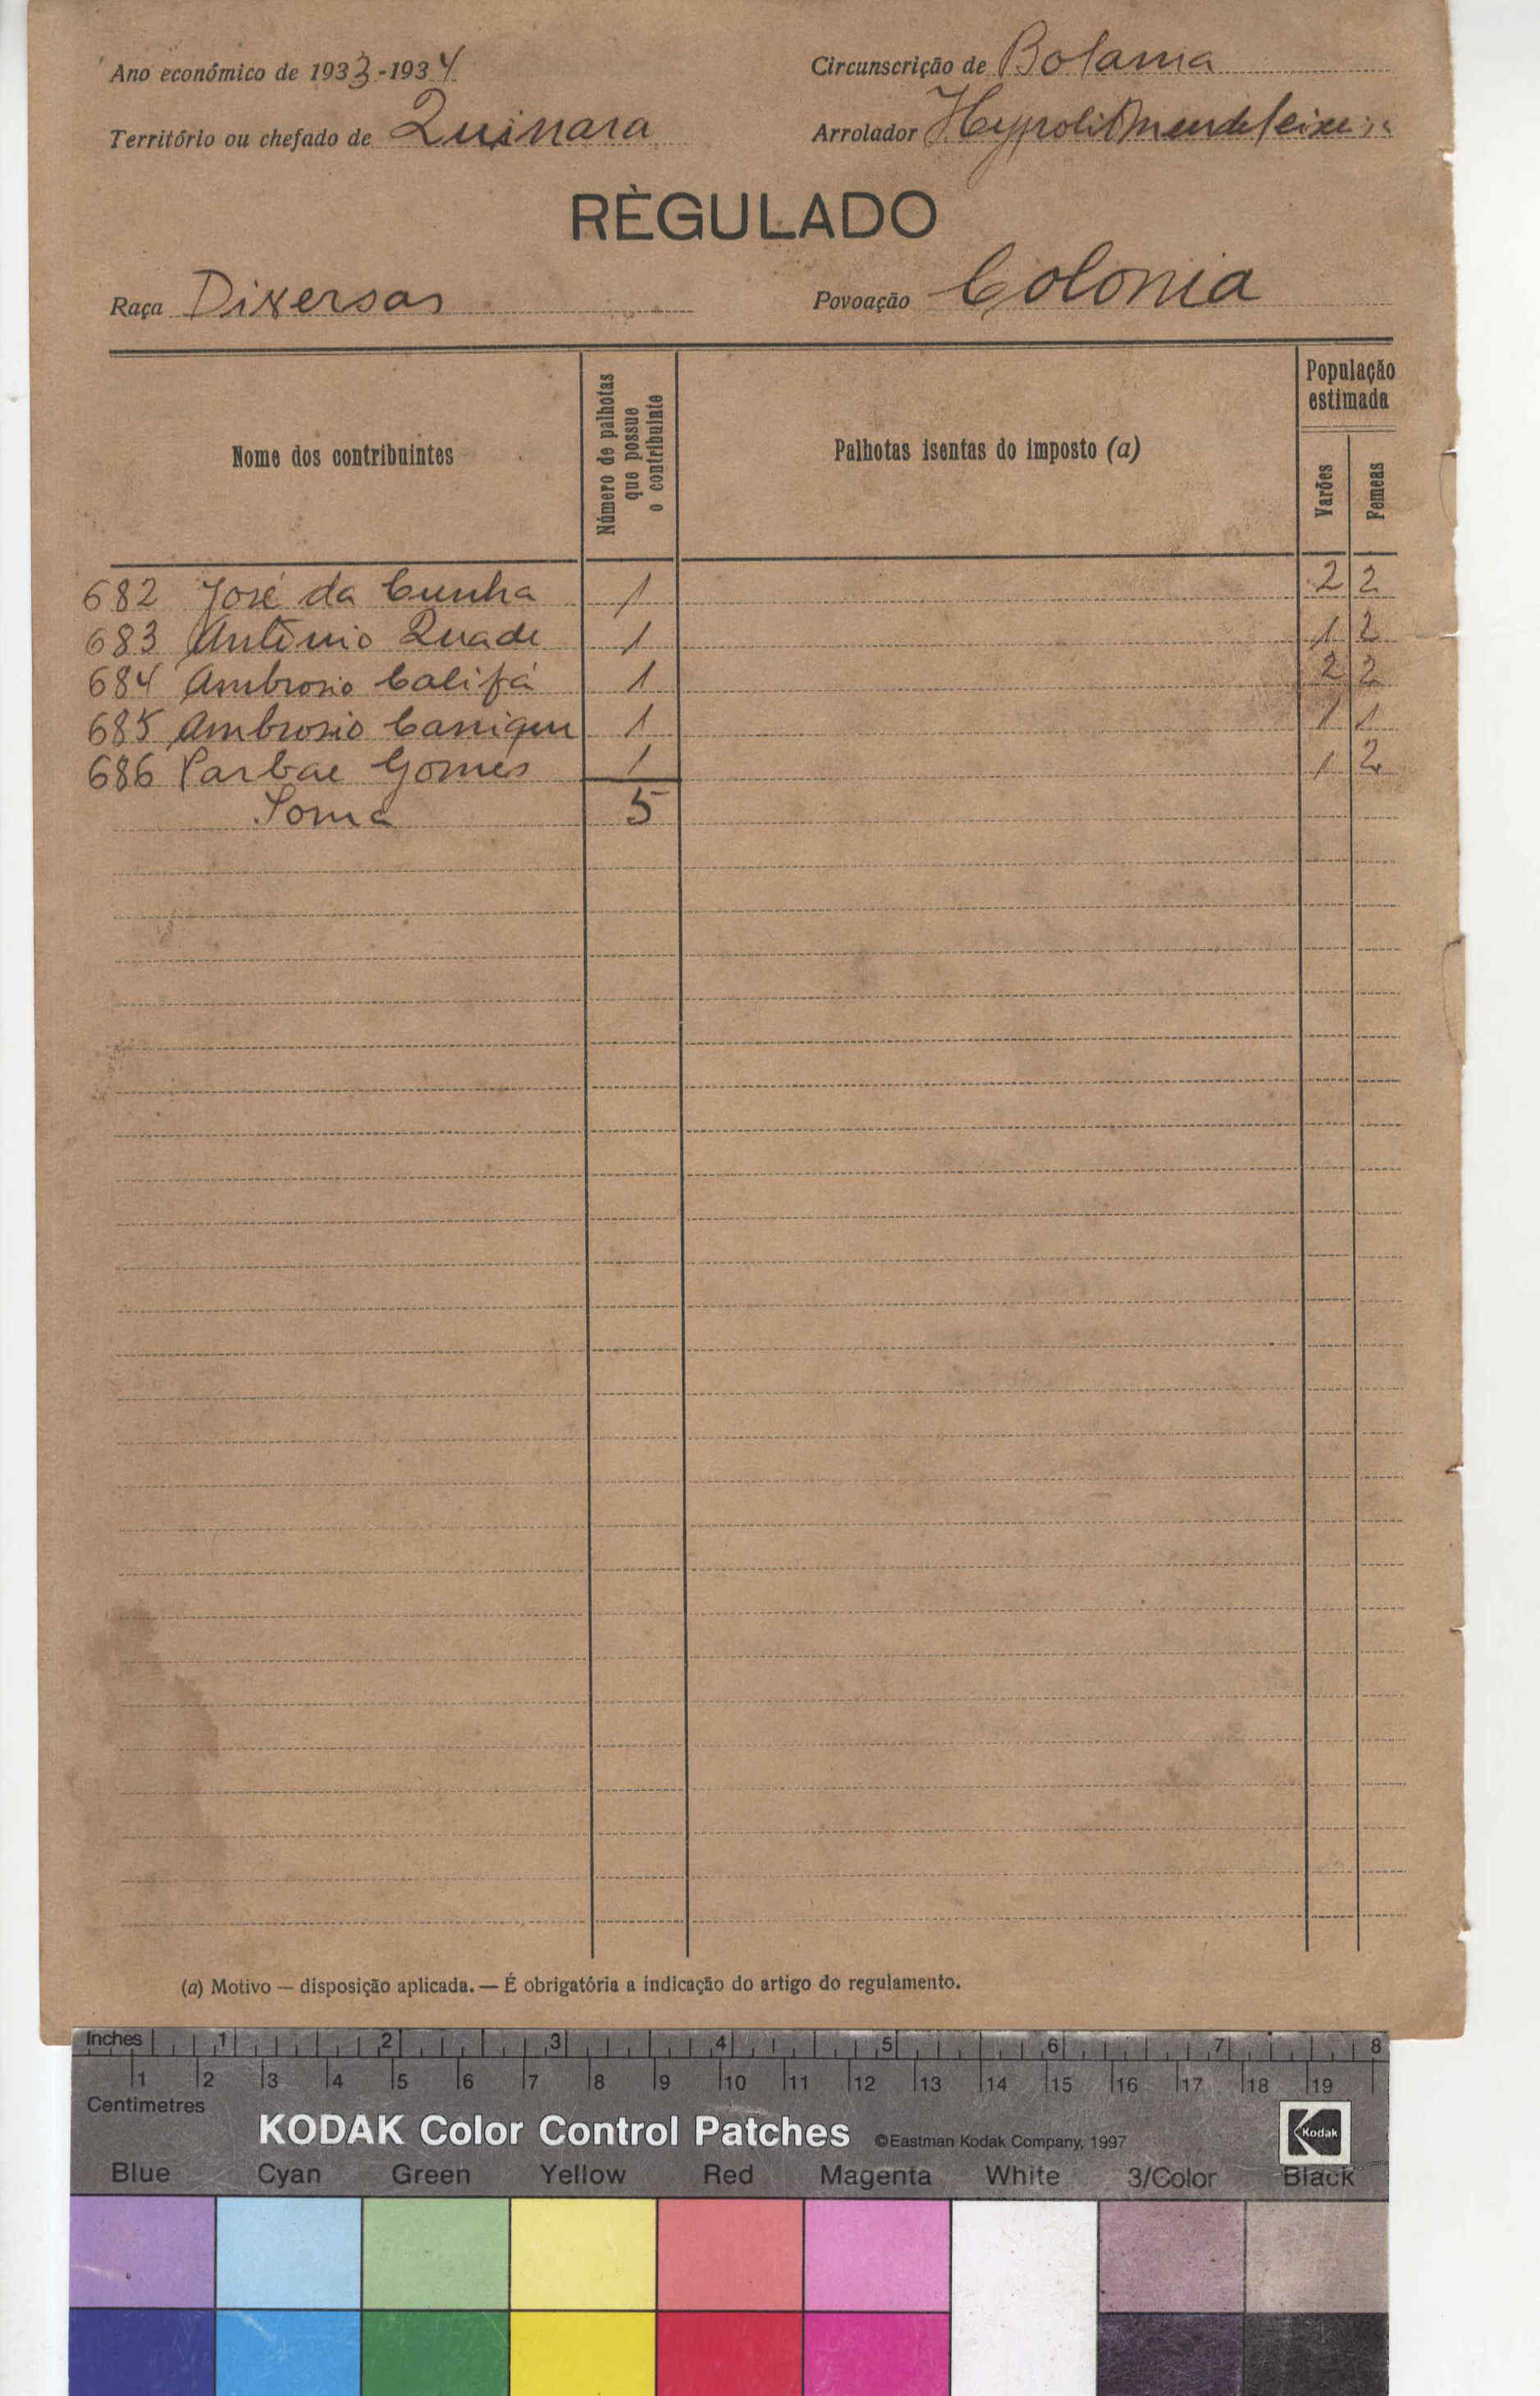 Ano económico de 1933-1934
Circunscrição de Bolama
Território ou chefado de Quinara
Arrolador Hypolit Mendes Teixeira
RÈGULADO
Raça Diversas
Povoação Colonia
Nome dos contribuintes
Número de palhotas que possue o contribuinte
Palhotas isentas do imposto (a)
População estimada
Varões
Femeas
682 José da Cunha 1 2 2
683 António Quade 1 1 2
684 Ambrosio Califá 1 2 2
685 Ambrosio 1 1 1
686 Gomes 1 1 2
Soma 5
(a) Motivo — disposição aplicada. — É obrigatória a indicação do artigo do regulamento.
Inches 1 2 3 4 5 6 7 8
1 2 3 4 5 6 7 8 9 10 11 12 13 14 15 16 17 18 19
Centimetres
KODAK Color Control Patches ©Eastman Kodak Company, 1997 Kodak
Blue Cyan Green Yellow Red Magenta White 3/Color Black